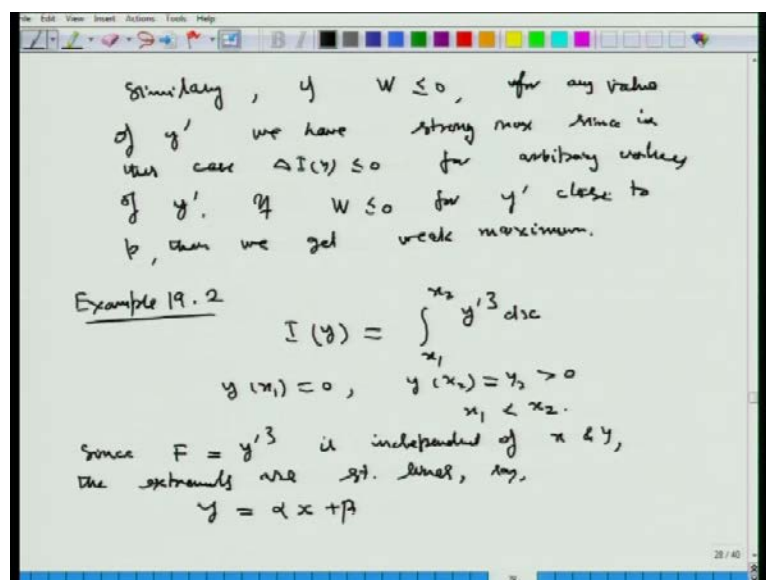 File Edit View Insert Actions Tools Help
Similarly, if W ≤ 0, for any value
of y' we have strong max since in
this case ΔI(y) ≤ 0 for arbitrary values
of y'. If W ≤ 0 for y' close to
p, then we get weak maximum.
Example 19.2
I(y) = ∫_{x_1}^{x_2} y'^3 dx
y(x_1) = 0, y(x_2) = y_2 > 0
x_1 < x_2.
Since F = y'^3 is independent of x & y,
the extremals are st. lines, say,
y = αx + β
28 / 40